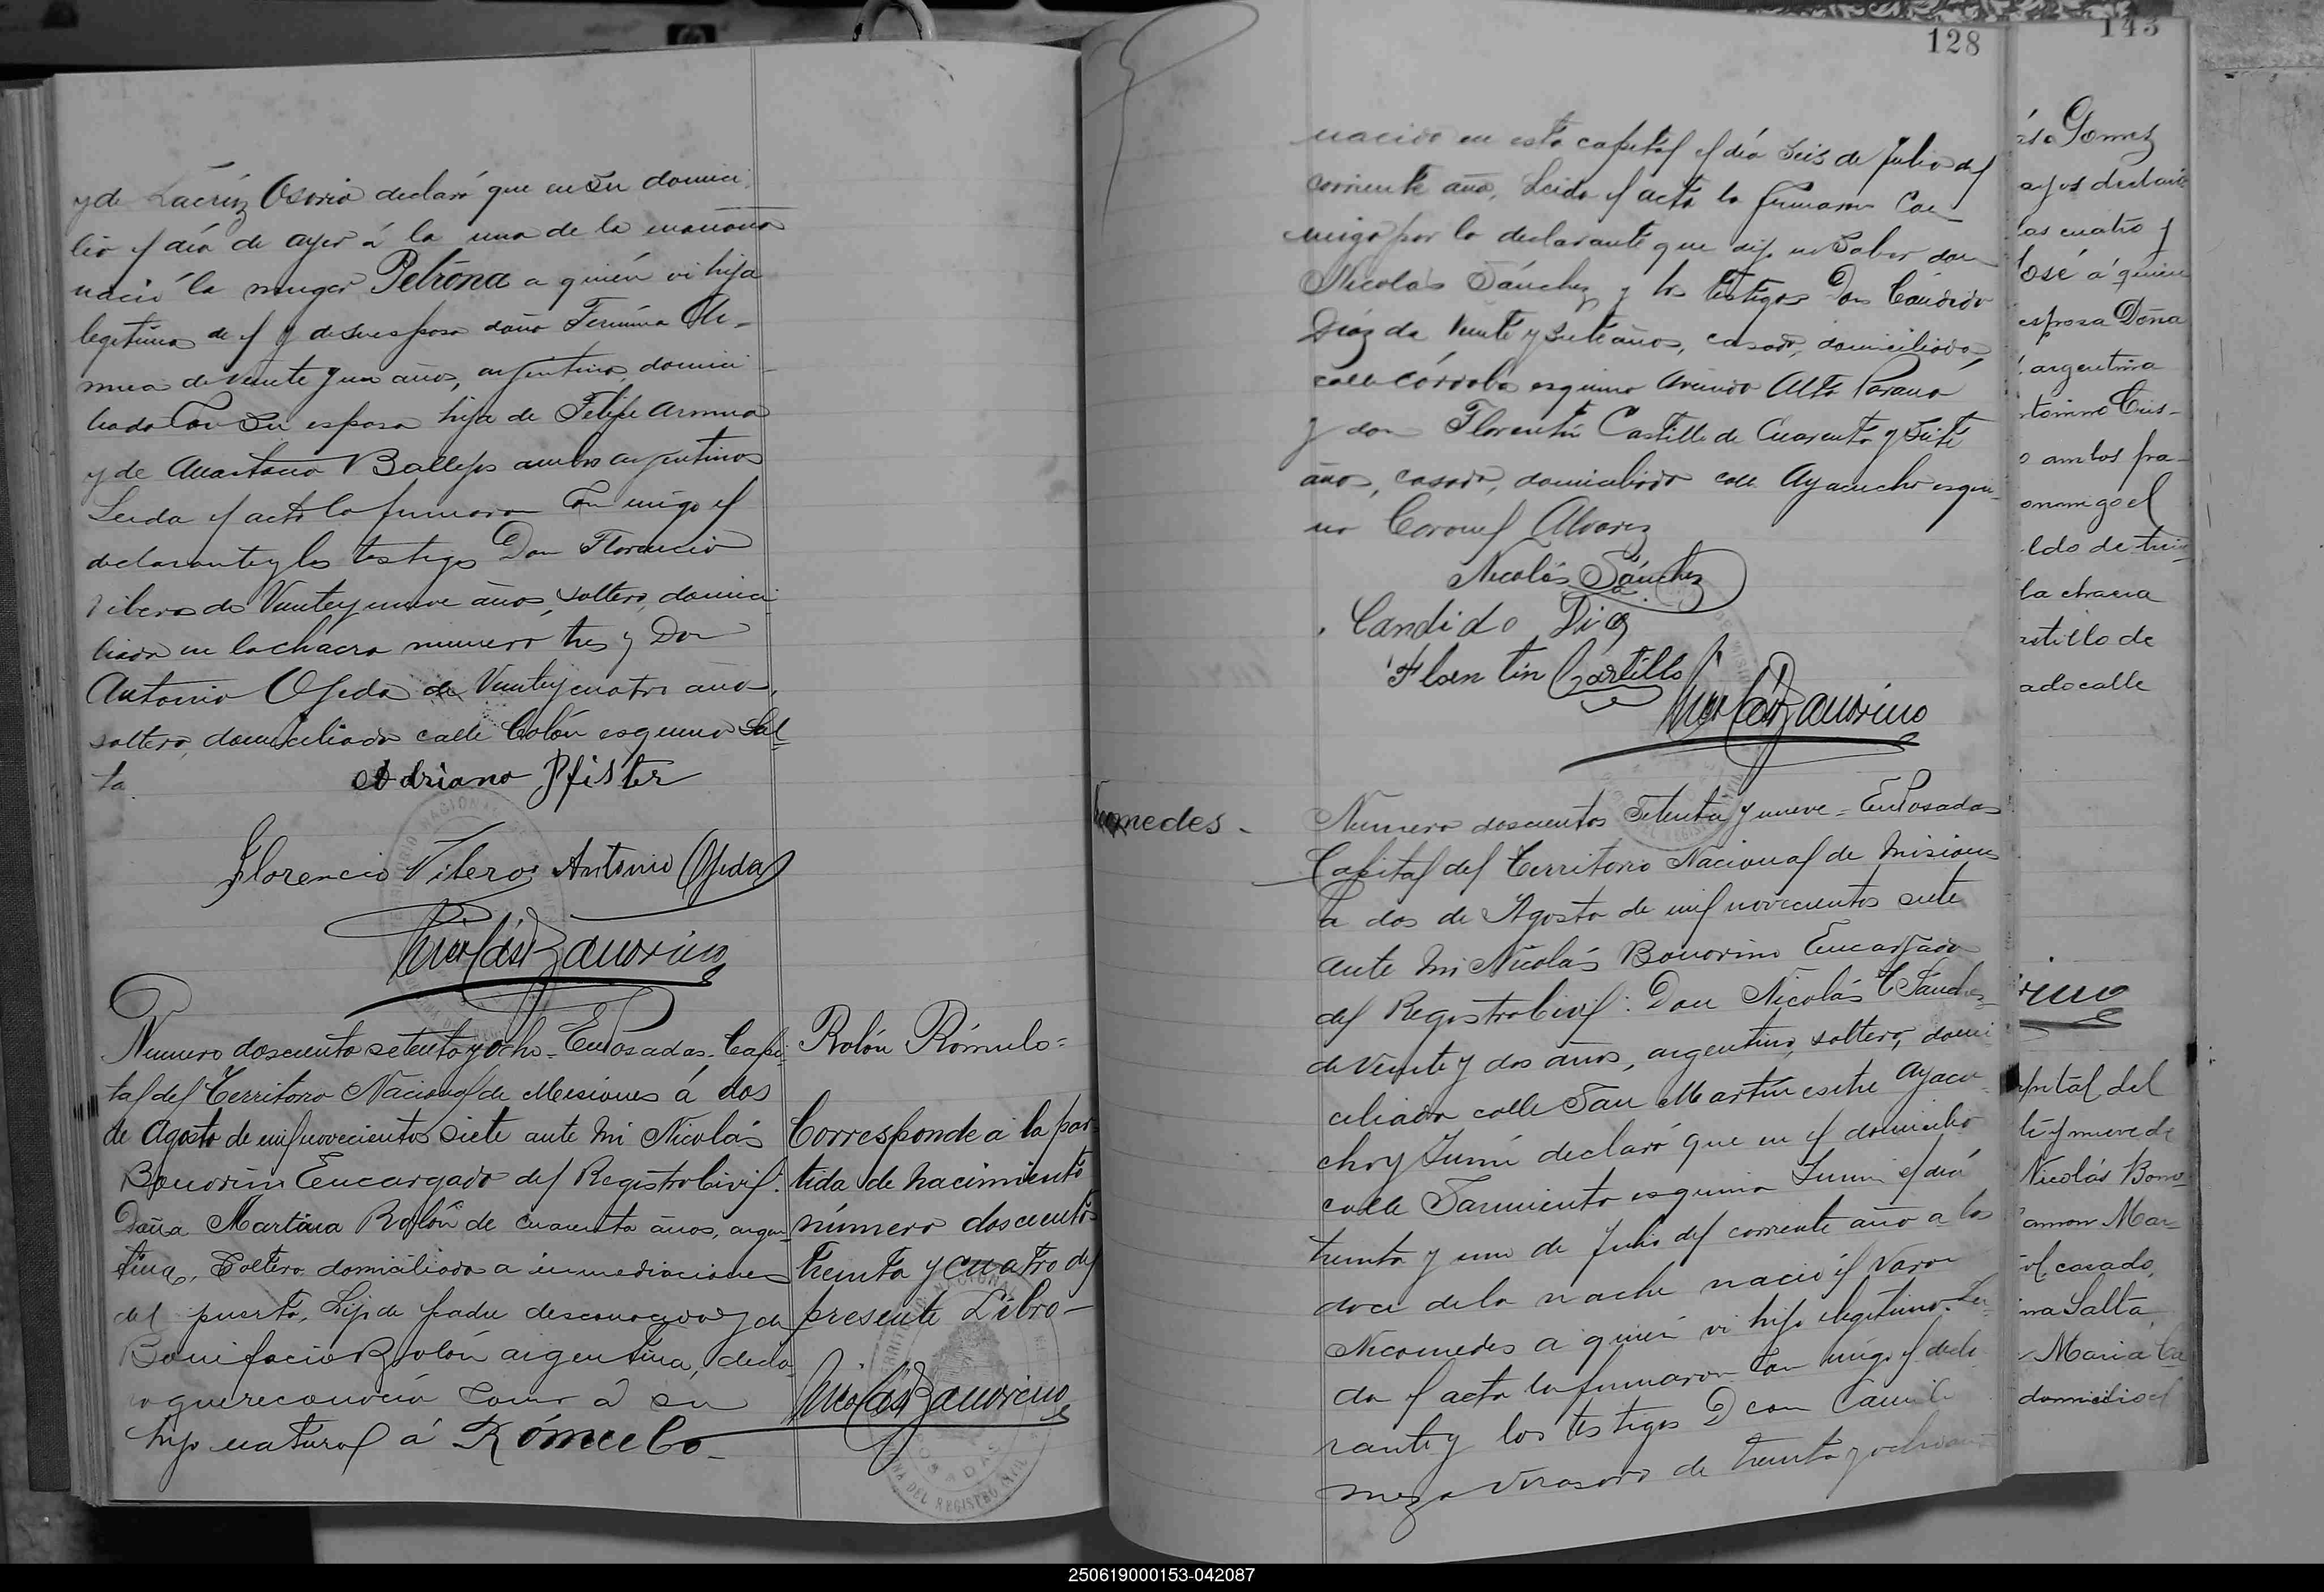 y de Lacruz Osorio declaró que en su domici
lio el día de ayer á la una de la mañana
nació la muger Petrona a quién vi hija
legitima de el y de su esposa doña Fermina Ar-
mua de veinte y un años, argentina, domici
liada con su esposo hija de Felipe Armua
y de Anastacia Ballejos ambos argentinos
Leida el acta la firmaron con migo el
declarante y los testigos Don Florencio
Viberos de Veinte y nueve años, soltero, domici
liado en la chacra numero tres y Don
Antonio Ojeda de Veinte y cuatro años,
soltero, domiciliado calle Colón esquina Sal
ta
Adriano Pfister
Florencio Viberos Antonio Ojeda
Nicolás Bonorino
Numero doscientos setenta y ocho - En Posadas. Capi
tal del Territorio Nacional de Misiones á dos
de Agosto de mil novecientos siete ante mi Nicolás
Bonorino Encargado del Registro Civil.
Doña Martina Rolón de cuarenta años, argen
tina, Soltera domiciliada a inmediaciones
del puerto, hija de padre desconocido y de
Bonifacia Rolón argentina, decla
ró que reconocía como á su
hijo natural á Rómulo-
Rolón Rómulo=
Corresponde a la par
tida de nacimiento
número doscientos
treinta y cuatro del
presente Libro-
Nicolás Bonorino
128
nacido en esta capital el día seis de Julio del
corriente año. Leida el acta la firmaron con
migo por la declarante que dijo no saber don
Nicolás Sánchez y los testigos Don Cándido
Díaz de Veinte y siete años, casado, domiciliado
calle Córdoba esquina Avenida Alto Paraná
y don Florentín Castillo de Cuarenta y siete
años, casado, domiciliado calle Ayacucho esqui-
na Coronel Alvarez
Nicolás Sánchez
Candido Diaz
Florentin Castillo
Nicolás Bonorino
medes-
Numero doscientos Setenta y nueve = En Posadas
Capital del Territorio Nacional de Misiones
a dos de Agosto de mil novecientos siete
ante mi Nicolás Bonorino Encargado
del Registro Civil: Don Nicolás C Sanchez
de Veinte y dos años, argentino, soltero, domi
ciliado calle San Martín entre Ayacu
cho y Junín declaró que en el domicilio
calle Sarmiento esquina Junin el día
treinta y uno de Julio del corriente año a las
doce de la noche nació el Varon
Nicomedes a quién vi hijo ilegitimo. Lei
da el acta la firmaron con migo el decla
rante y los testigos Don Camilo
meza Verasoro de treinta y ocho años
143
Gomez
as cuatro y
José á quien
esposa Doña
argentina
o ambos pa-
onmigo el
ldo de trein
la chacra
astillo de
ado calle
rino
apital del
te y nueve de
Nicolás Bono
amon Mar
ol, casado,
ina Salta,
Maria Ca
domicilio el
250619000153-042087